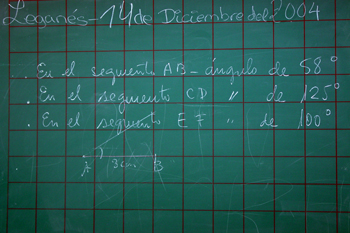 Leganés - 14 de Diciembre del 2004
. En el segmento AB - ángulo de 58°
. En el segmento CD " de 125°
. En el segmento EF " de 100°
A 3cm. B